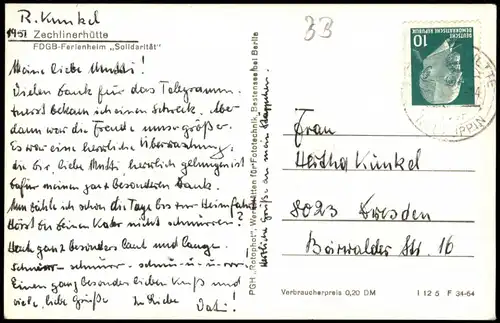 R. Kunkel
1951 Zechlinerhütte
FDGB-Ferienheim „Solidarität"
33
Meine liebe Mutti!
Vielen Dank für das Telegramm.
Zuerst bekam ich einen Schreck. Aber
dann war die Freude umso größer.
Es war eine herrliche Überraschung,
die Dir, liebe Mutti, herrlich gelungen ist
dafür meinen ganz besonderen Dank.
Nun zähle ich schon die Tage bis zur Heimfahrt.
Hörst Du deinen Kater nicht schnurren?
Hach ganz besonders laut und lange.
Schnurr- schnurr- schnu-u-u-rr!
Einen ganz besonders lieben Kuß und
viele, liebe Grüße In Liebe
Vati!
Herzliche Grüße an mein
PGH „Rotophot", Werkstätten für Fototechnik, Bestensee bei Berlin
DEUTSCHE
DEMOKRATISCHE REPUBLIK
10
Frau
Hertha Kunkel
8023 Dresden
Bärwalder Str. 16
Verbraucherpreis 0,20 DM I 12 5 F 34-64